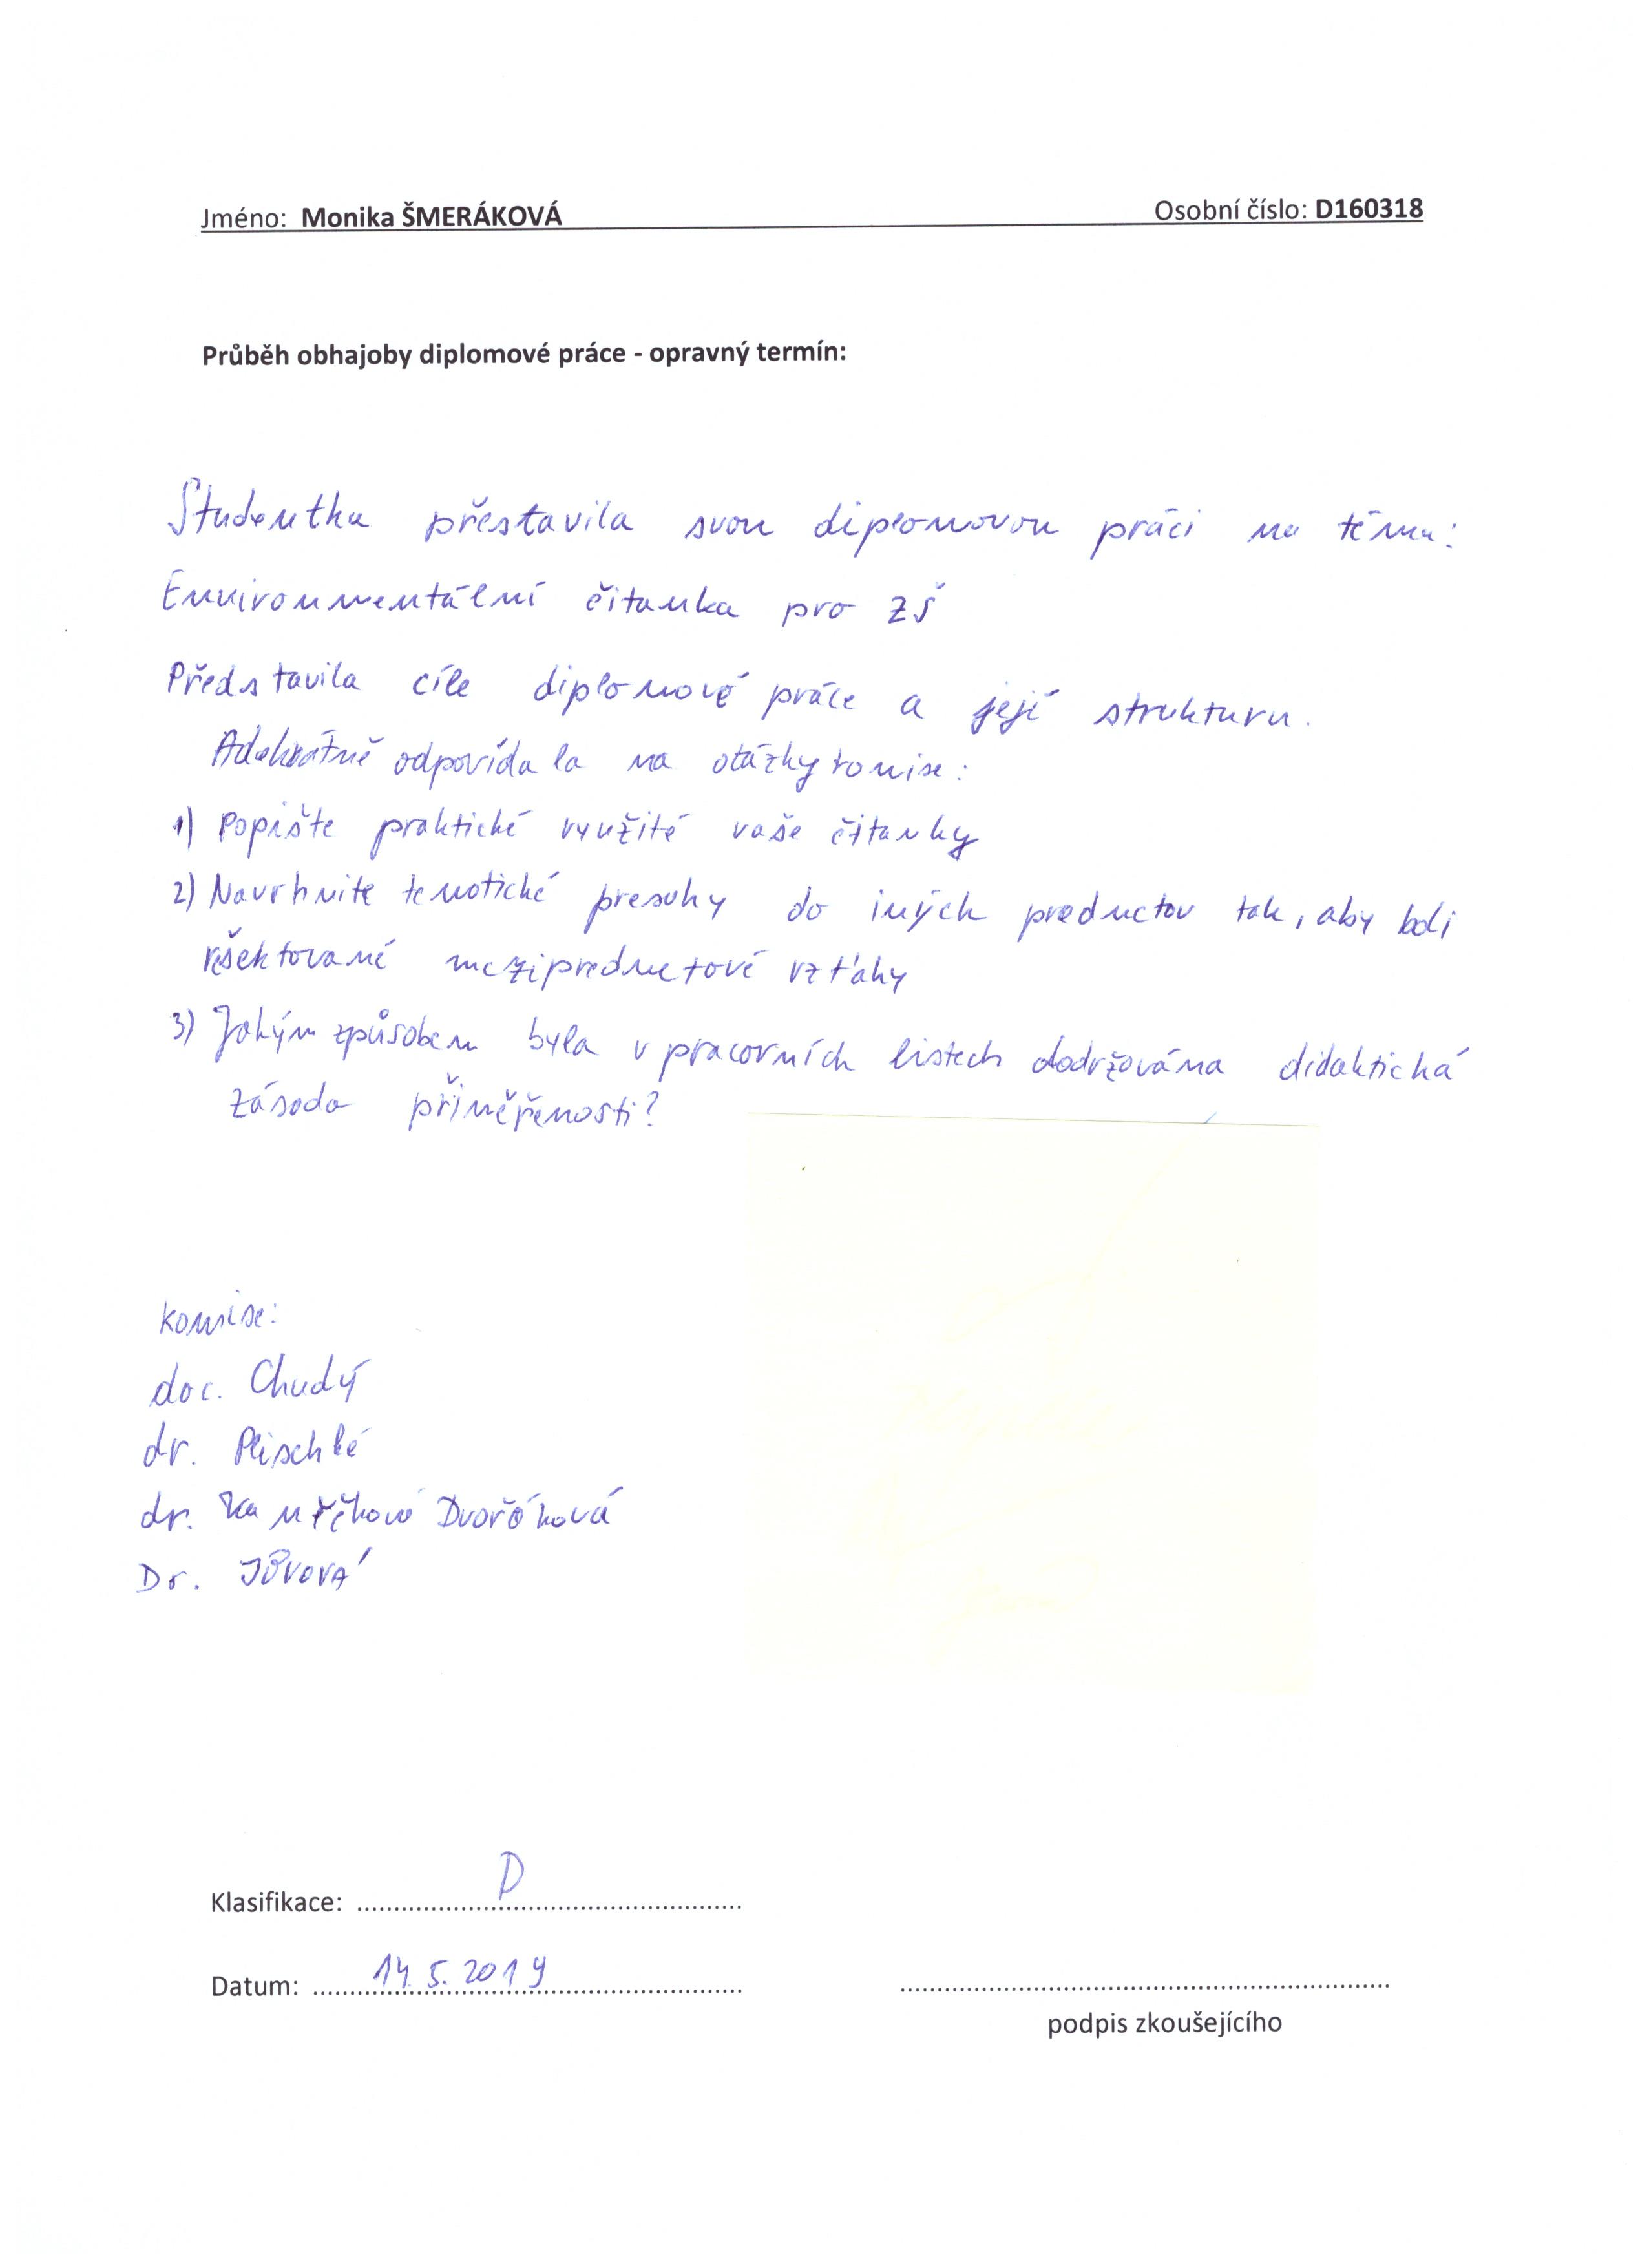 Jméno: Monika ŠMERÁKOVÁ Osobní číslo: D160318
Průběh obhajoby diplomové práce - opravný termín:
Studentka přestavila svou diplomovou práci na téma:
Environmentální čitanka pro ZŠ
Představila cíle diplomové práce a její strukturu.
Adekvátně odpovídala na otázky komise:
1) Popište praktické využité vaše čítanky
2) Navrhnite tematické presahy do iných predmetov tak, aby boli
rešektované mezipredmetové vzťahy
3) Jakým způsobem byla v pracovních listech dodržována didaktická
zásada přiměřenosti?
Komise:
doc. Chudý
dr. Plischke
dr. Dvořáková
Dr. Jůvová
Klasifikace: D
Datum: 14. 5. 2019
podpis zkoušejícího